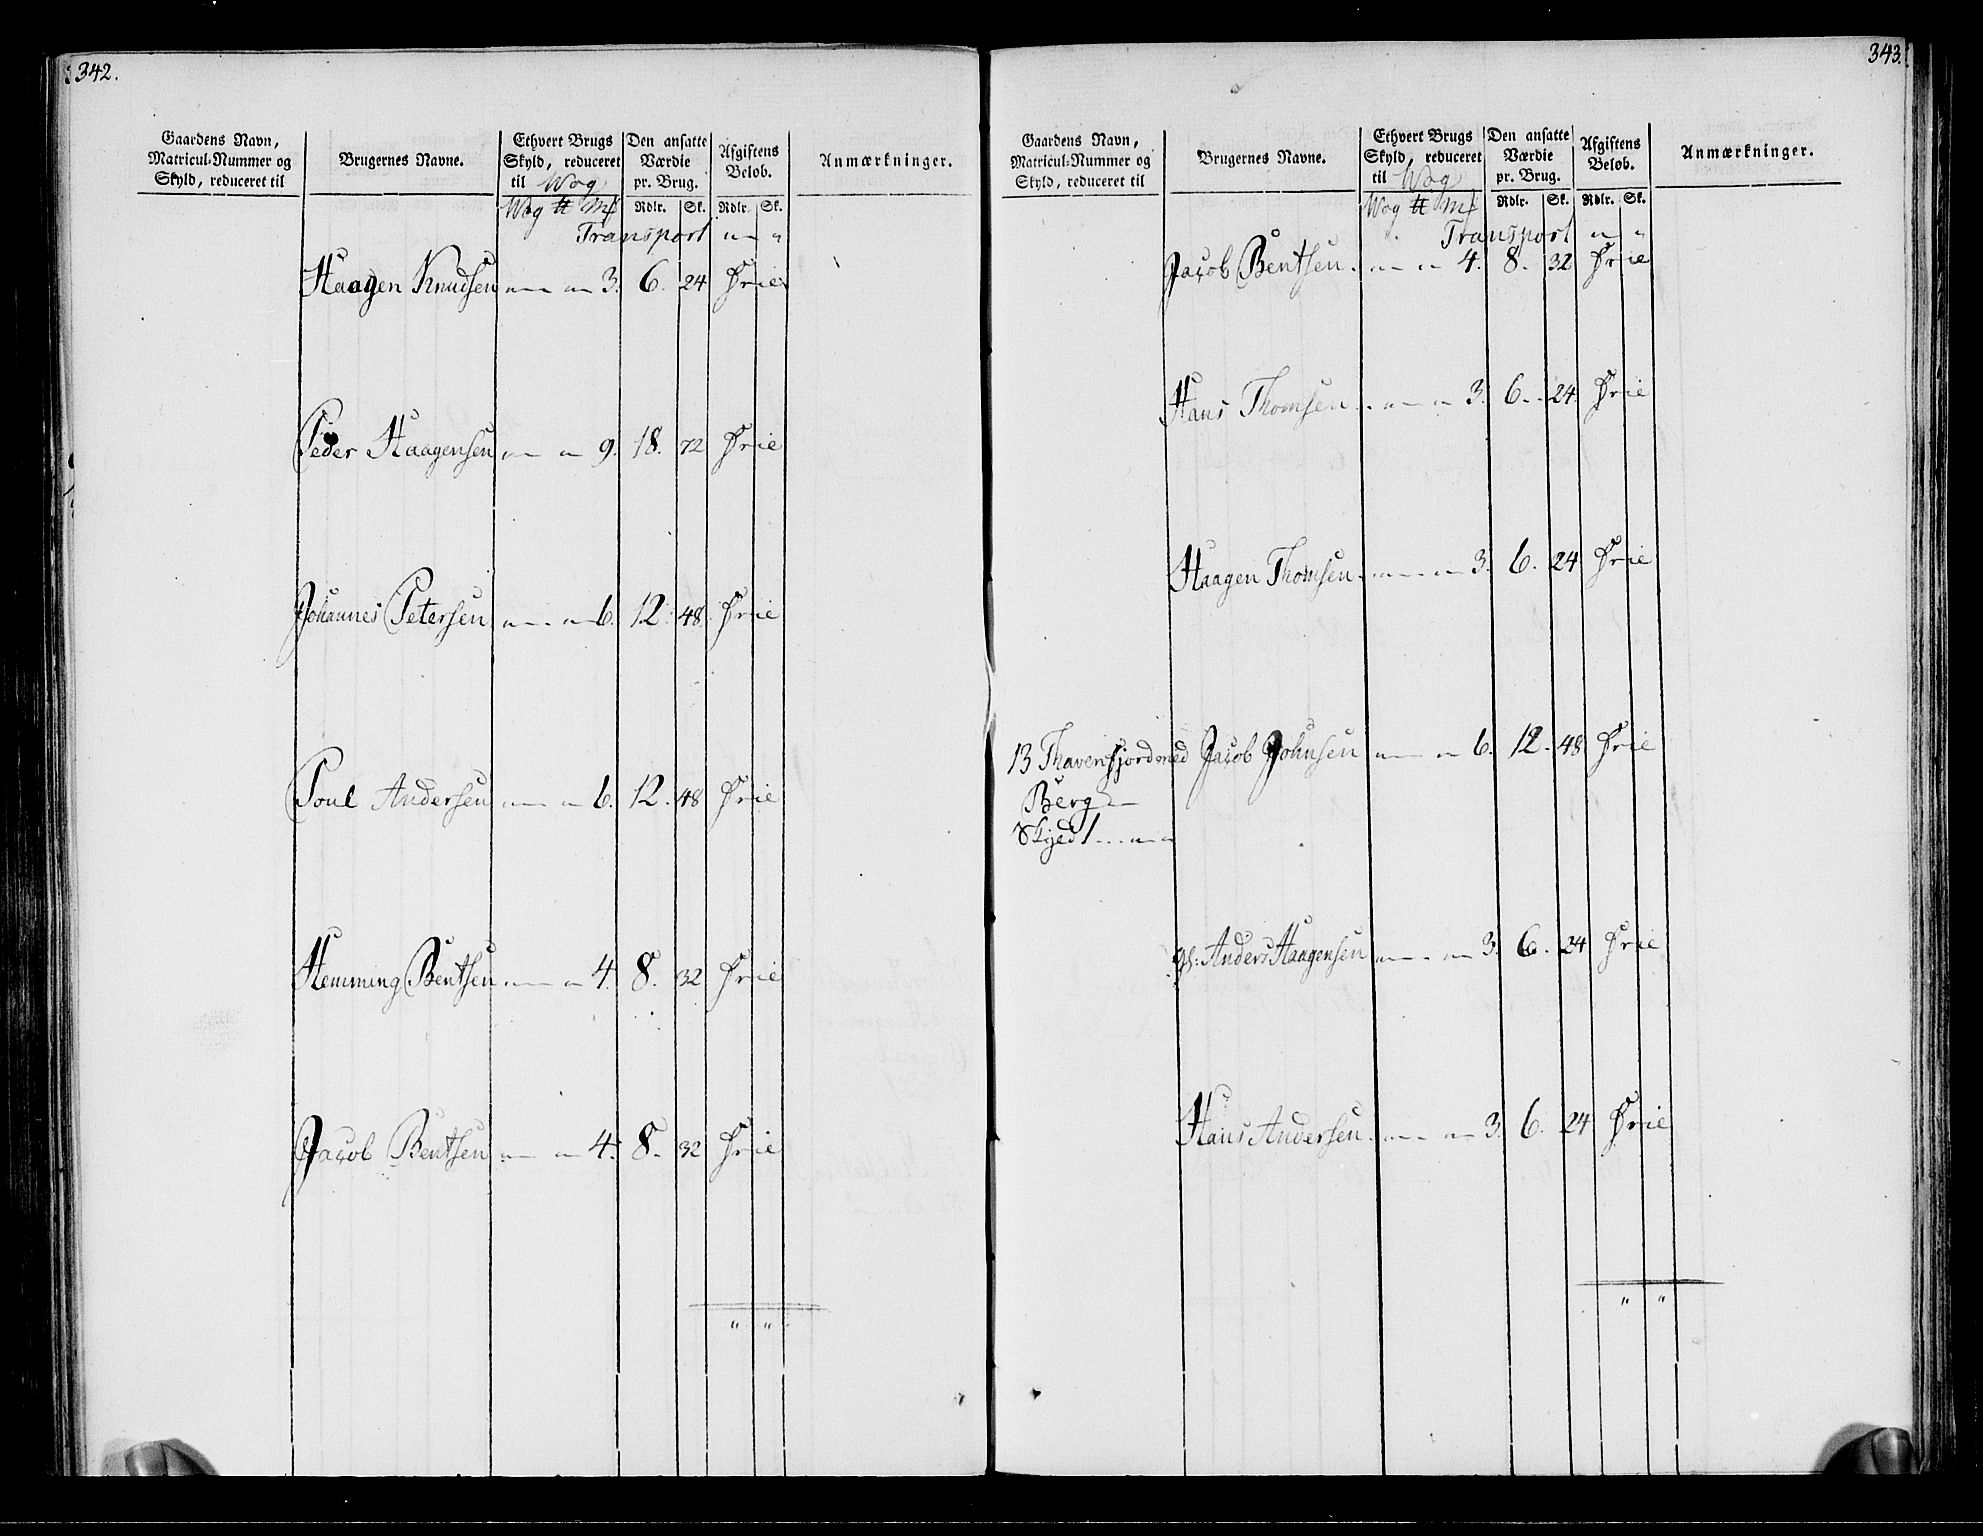 342.
Gaardens Navn,
Matricul-Nummer og
Skyld, reduceret til
Brugernes Navne.
Ethvert Brugs
Skyld, reduceret
til Wog
Wog ℔ Mk
Den ansatte
Værdie
pr. Brug.
Rdlr. Sk.
Afgiftens
Beløb.
Rdlr. Sk.
Anmærkninger.
Transport " "
Haagen Knudsen " " 3. 6. 24 Frie
Peder Haagensen " " 9. 18. 72 Frie
Johannes Petersen " " 6. 12. 48 Frie
Poul Andersen " " 6. 12. 48 Frie
Hemming Bentsen " " 4. 8. 32 Frie
Jacob Bentsen " " 4. 8. 32 Frie
" "
343.
Gaardens Navn,
Matricul-Nummer og
Skyld, reduceret til
Brugernes Navne.
Ethvert Brugs
Skyld, reduceret
til Wog
Wog ℔ Mk
Den ansatte
Værdie
pr. Brug.
Rdlr. Sk.
Afgiftens
Beløb.
Rdlr. Sk.
Anmærkninger.
Transport " "
Jacob Bentsen " " 4. 8. 32 Frie
Hans Thomsen " " 3. 6. 24 Frie
Haagen Thomsen " " 3. 6. 24 Frie
13 Thavensfjord med Jacob Johnsen " " 6. 12. 48 Frie
Berg
Skyed 1 " "
Anders Haagensen " " 3. 6. 24 Frie
Hans Andersen " " 3. 6. 24 Frie
" "